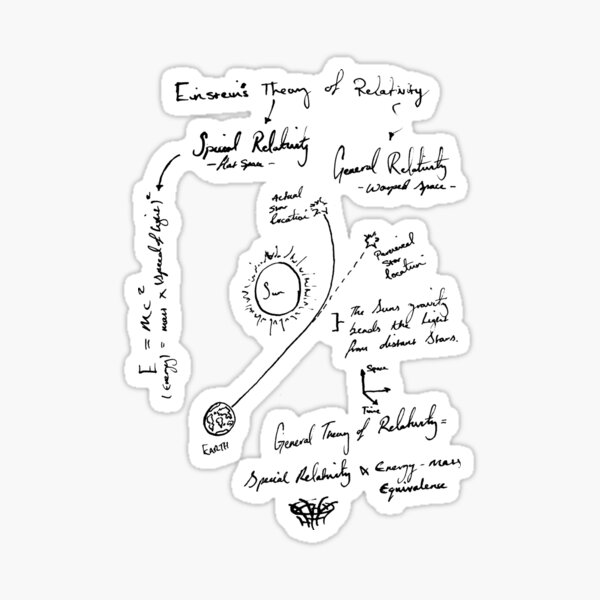 Einstein's Theory of Relativity
Special Relativity
- Flat Space -
General Relativity
- Warped Space -
E = mc²
(Energy) = mass x (speed of light)²
Actual
Star
Location
Sun
Perceived
Star
Location
The Suns gravity
bends the Light
from distant Stars.
Space
Time
EARTH
General Theory of Relativity =
Special Relativity & Energy - mass
Equivalence